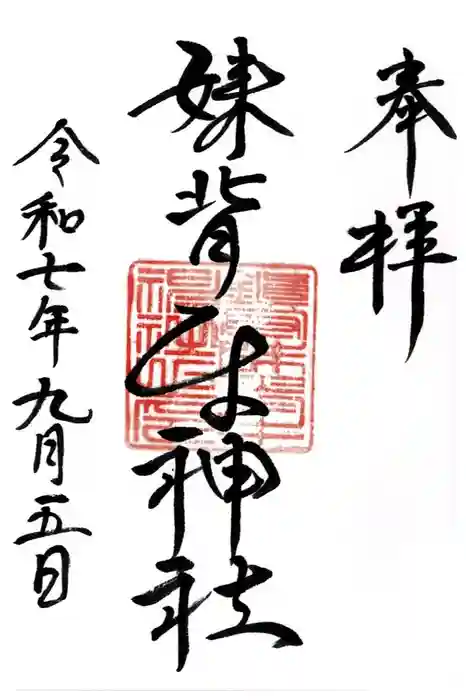 奉拝
妹背牛神社
令和七年九月五日